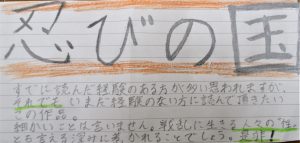 忍びの国
すでに読んだ経験のある方が多い思われますが、
それでも いまだ経験のない方に読んで頂きたい
この作品。
細かいことは言いません。戦乱に生きる人々の"性"
とも言える深みに考かれることでしょう。是非!